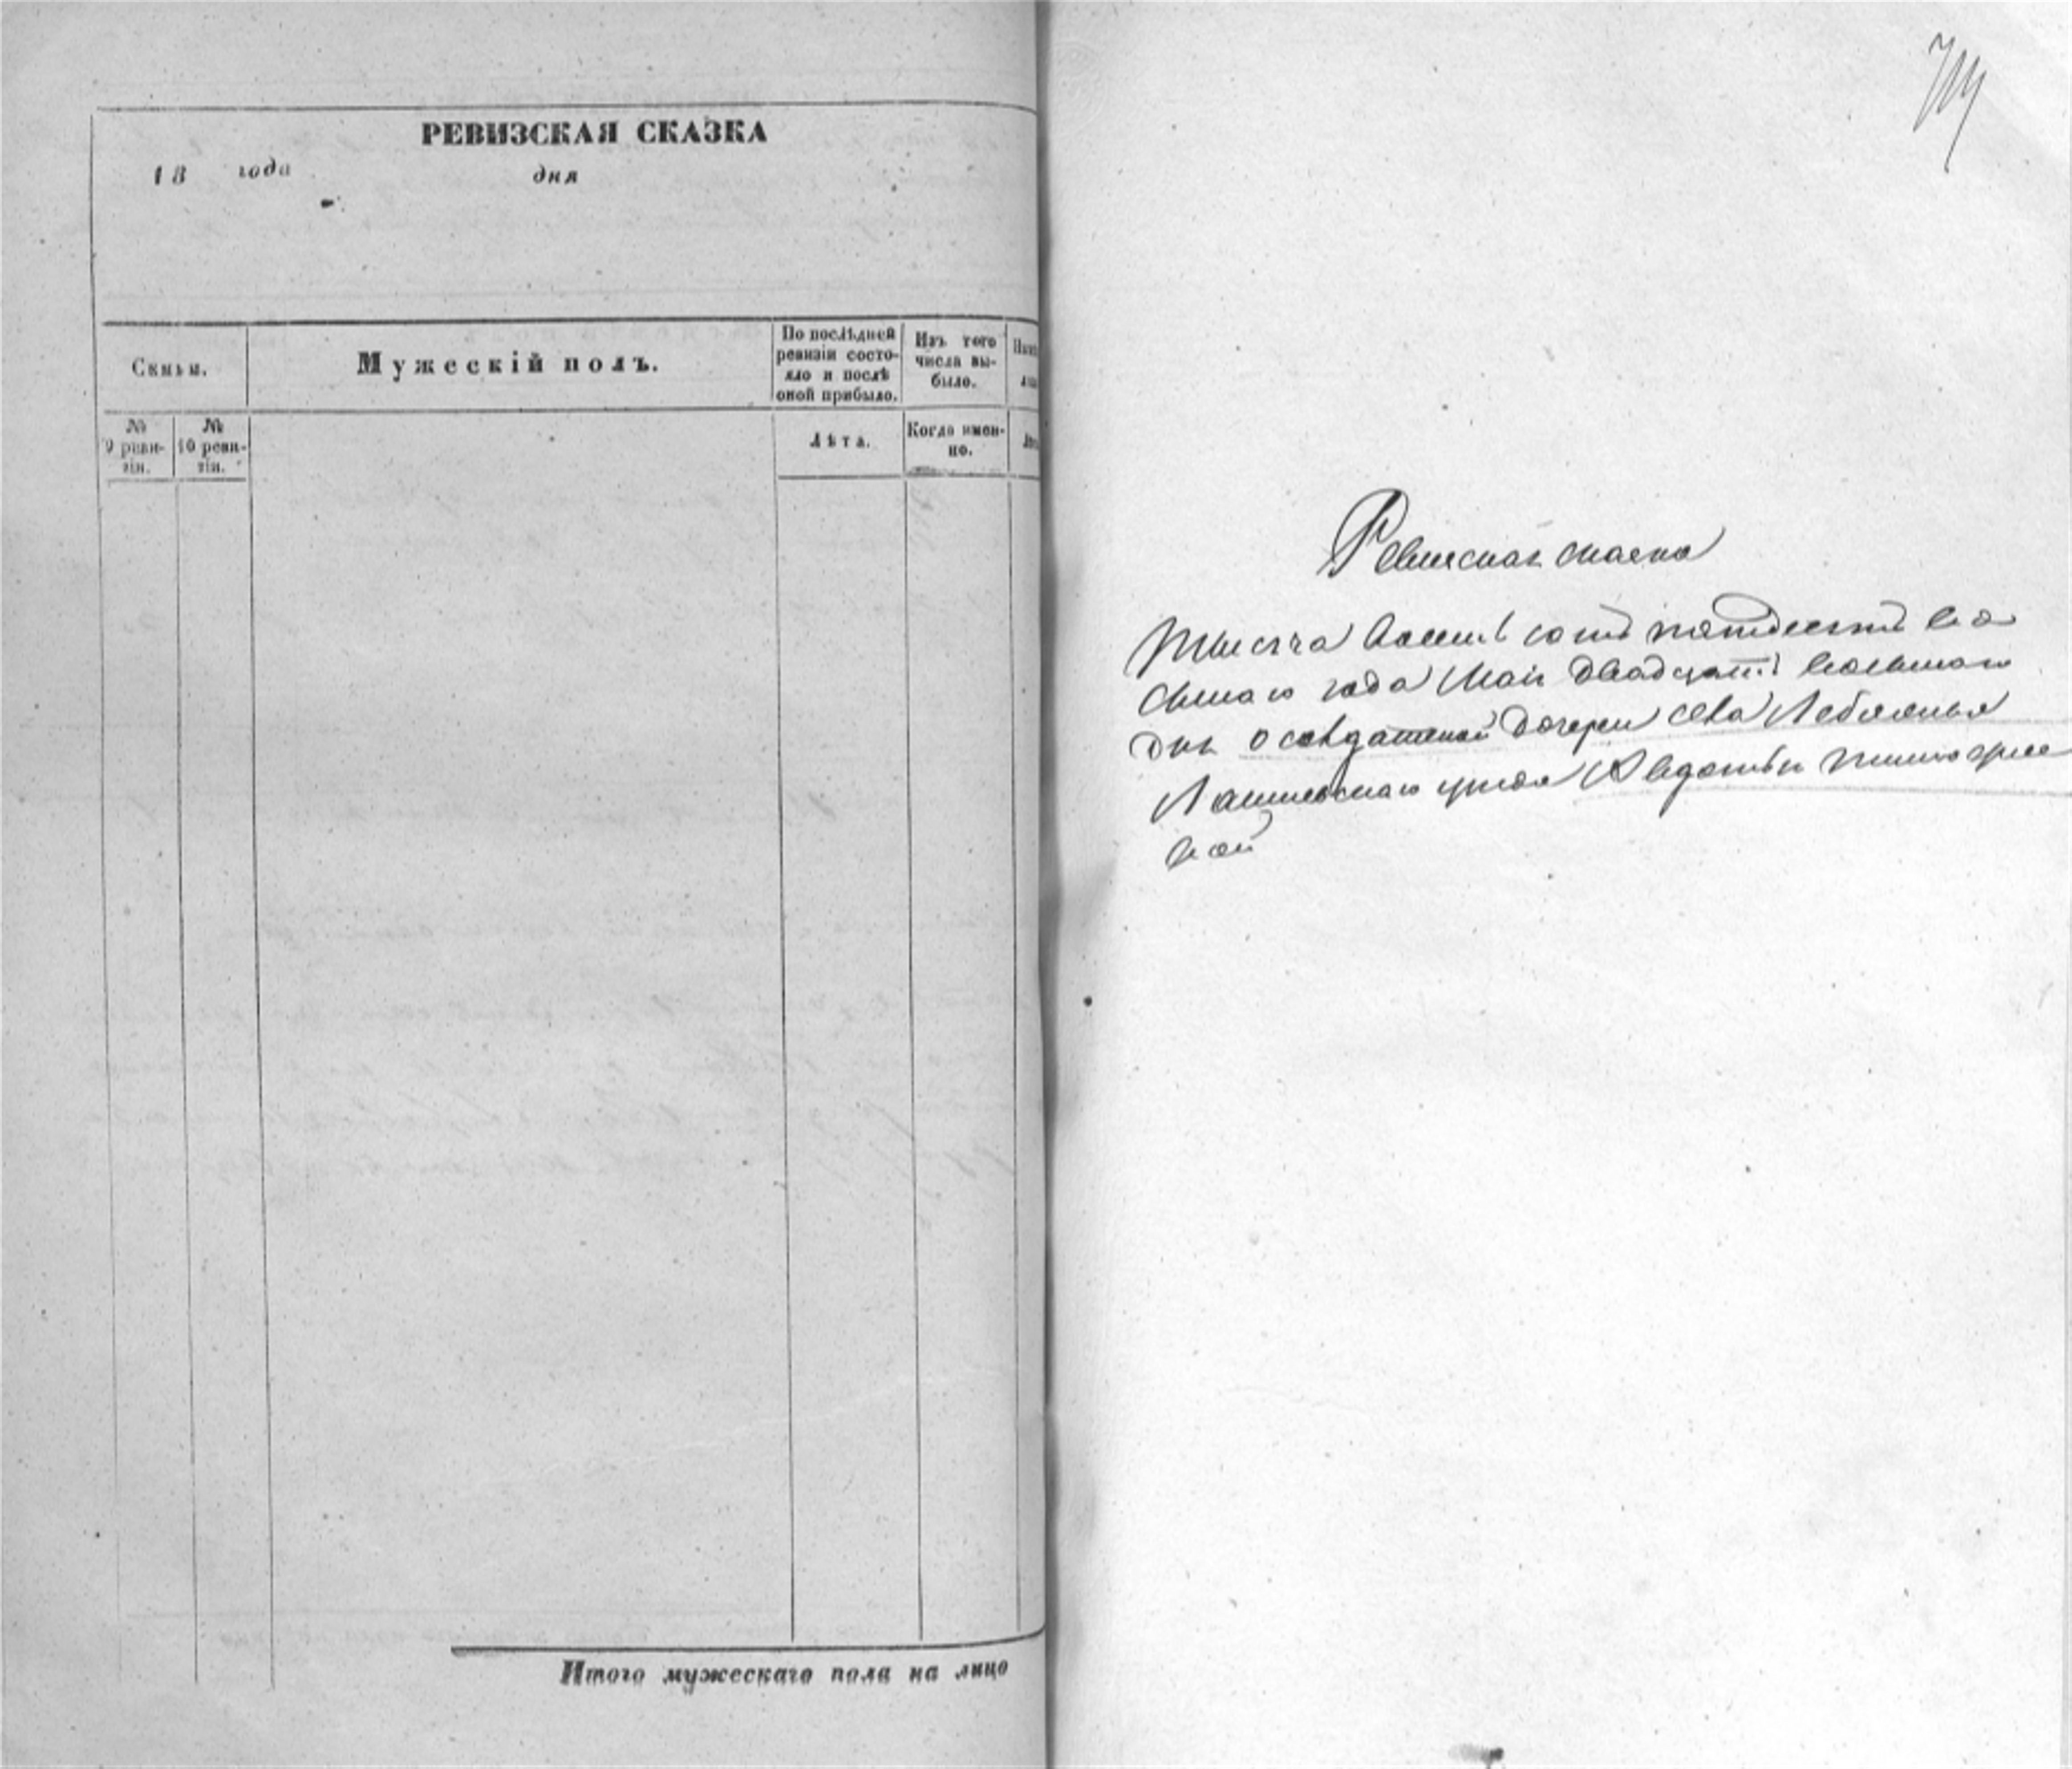 РЕВИЗСКАЯ СКАЗКА
18 года дня
Семьи.
Мужескій полъ.
По послѣдней ревизіи состояло и послѣ оной прибыло.
Изъ того числа выбыло.
№ 9 ревизіи.
№ 10 ревизіи.
Лѣта.
Когда именно.
Итого мужескаго пола на лицо
Ревизская сказка
Тысяча восемь сотъ пятдесятъ во
сьмаго года Маія двадцать восьмаго
дня о солдатской дочери села Лебяжья
Лаишевскаго уѣзда Авдотьи Тимофѣе
вой